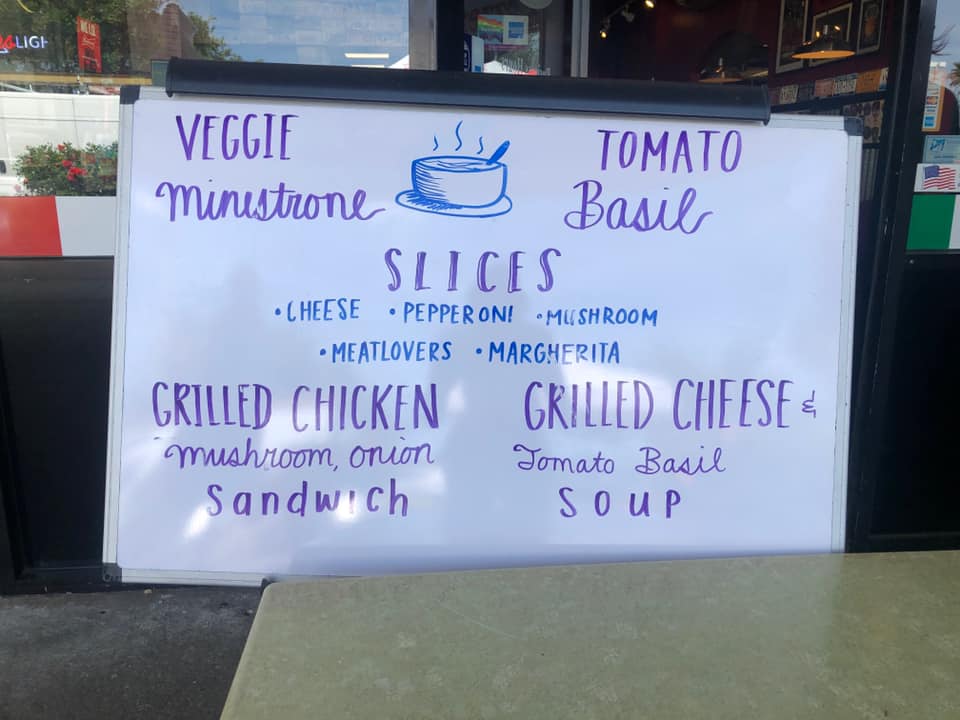 VEGGIE
Minestrone
TOMATO
Basil
SLICES
• CHEESE • PEPPERONI • MUSHROOM
• MEATLOVERS • MARGHERITA
GRILLED CHICKEN
mushroom, onion
Sandwich
GRILLED CHEESE &
Tomato Basil
SOUP